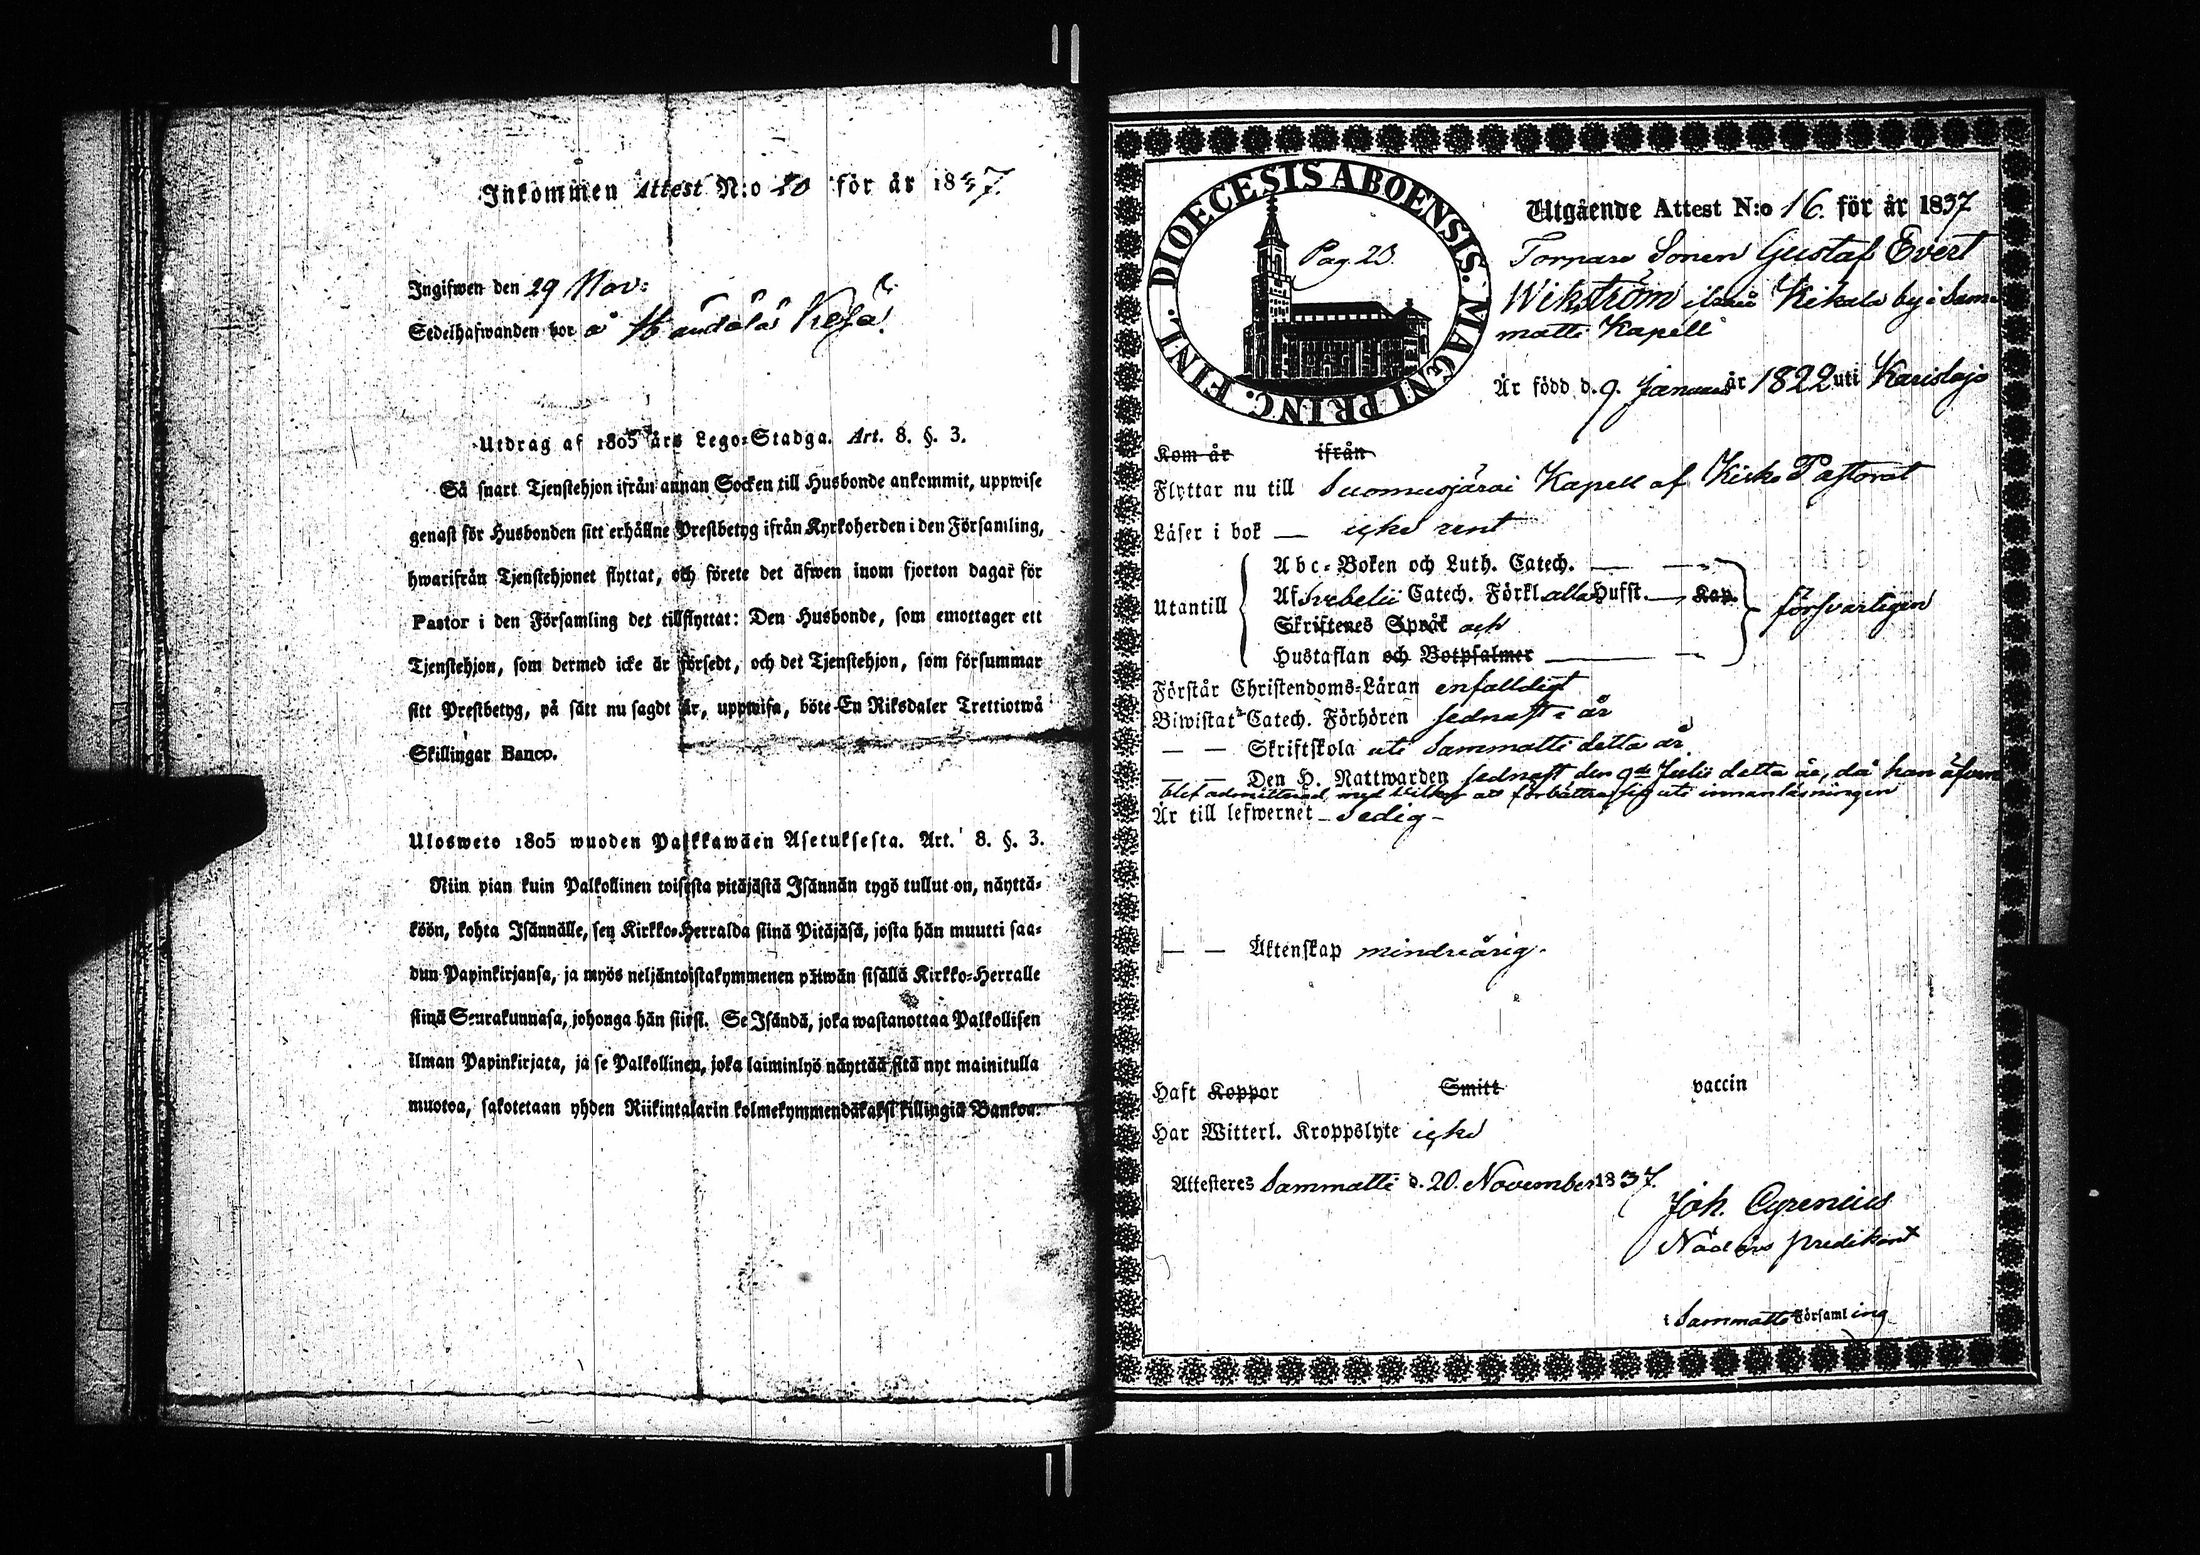 Inkommen Attest N:o 20 för år 1837.
Ingifwen den 29 Nov:
Sedelhafwanden bor å
Utdrag af 1805 års Lego-Stadga. Art. 8. §. 3.
Så snart Tjenstehjon ifrån annan Socken till Husbonde ankommit, uppwise
genast för Husbonden sitt erhållne Prestbetyg ifrån Kyrkoherden i den Församling,
hwarifrån Tjenstehjonet flyttat, och förete det äfwen inom fjorton dagar för
Pastor i den Församling det tillflyttat: Den Husbonde, som emottager ett
Tjenstehjon, som dermed icke är försedt, och det Tjenstehjon, som försummar
sitt Prestbetyg, på sätt nu sagdt är, uppwisa, böte En Riksdaler Trettiotwå
Skillingar Banco.
Ulosweto 1805 wuoden Palkkawäen Asetuksesta. Art. 8. §. 3.
Niin pian kuin Palkollinen toisesta pitäjästä Isännän tygö tullut on, näyttä-
köön, kohta Isännälle, sen Kirkko-Herralda siinä Pitäjäsä, josta hän muutti saa-
dun Papinkirjansa, ja myös neljäntoistakymmenen päiwän sisällä Kirkko-Herralle
siinä Seurakunnasa, johonga hän siirsi. Se Isändä, joka wastanottaa Palkollisen
ilman Papinkirjata, ja se Palkollinen, joka laiminlyö näyttää sitä nyt mainitulla
muotoa, sakotetaan yhden Riikintalarin kolmekymmendäkaksi killingiä Bankoa.
DIOECESIS ABOENSIS. MAGNI PRINC. FINL.
Pag. 23.
Utgående Attest N:o 16. för år 1837
Torpare Sonen Gustaf Evert
Wikström ifrån Kikala by i Sam-
matti Kapell
Är född d. 9. Januarii år 1822 uti Karislojo
Kom år ifrån
Flyttar nu till Suomusjärvi Kapell af Kisko Pastorat
Läser i bok — icke rent
Utantill
Abc-Boken och Luth. Catech. —
Af Svebelii Catech. Förkl. alla Hufst. — Kap.
Skriftenes Språk och
Hustaflan och Botpsalmer —
försvarligen
Förstår Christendoms-Läran enfalldigt
Biwistat Catech. Förhören sednast i år
— — Skriftskola uti Sammatti detta år
— — Den H. Nattwarden sednast den 9de Julii detta år, då han äfven
blef admitterad, med vilkor att förbättra sig uti innanläsningen
Är till lefwernet — Sedig —
— — Äktenskap minderårig.
Haft Koppor Smitt vaccin
Har Witterl. Kroppslyte icke
Attesteres Sammatti d. 20. November 1837.
Joh. Cyrenius
Nådårs predikant
i Sammatti Församling